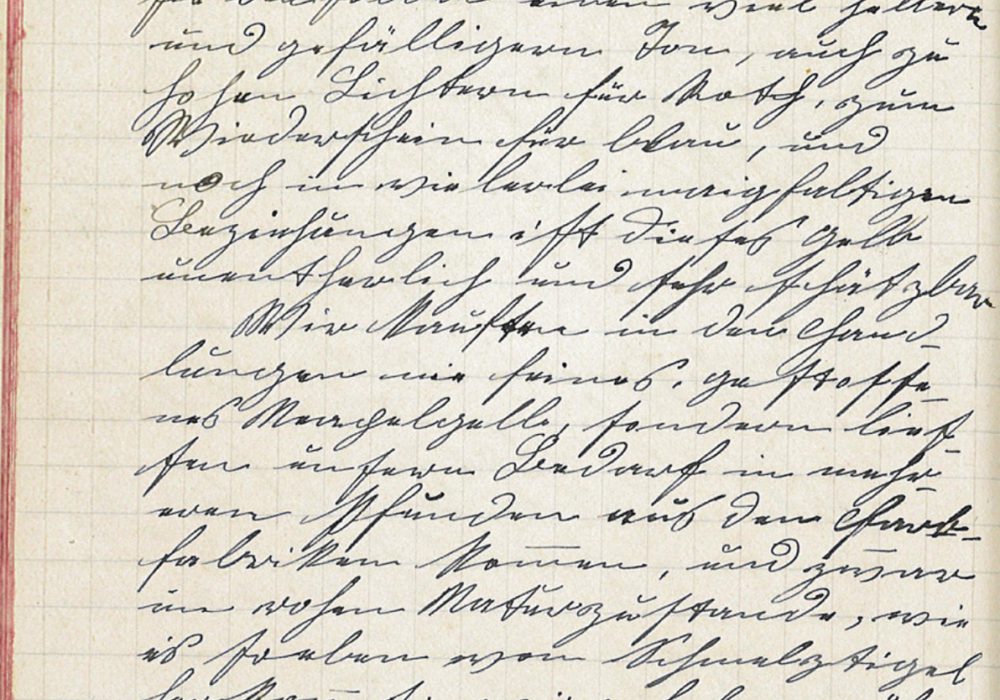 einen viel hellern
und gefälligern Ton, auch zu
hohen Lichtern für Roth, zum
Wiederschein für blau, und
noch in vielerlei manigfaltigen
Beziehungen ist dieses Gelb
unentberlich und sehr schätzbar
Wir kauften in den Hand-
lungen nie feines, gestosse-
nes Neapelgelb, sondern lies-
sen unsern Bedarf in mehr-
eren Pfunden aus den Farb-
fabriken kom̅en, und zwar
im rohen Naturzustande, wie
es soeben vom Schmelztigel